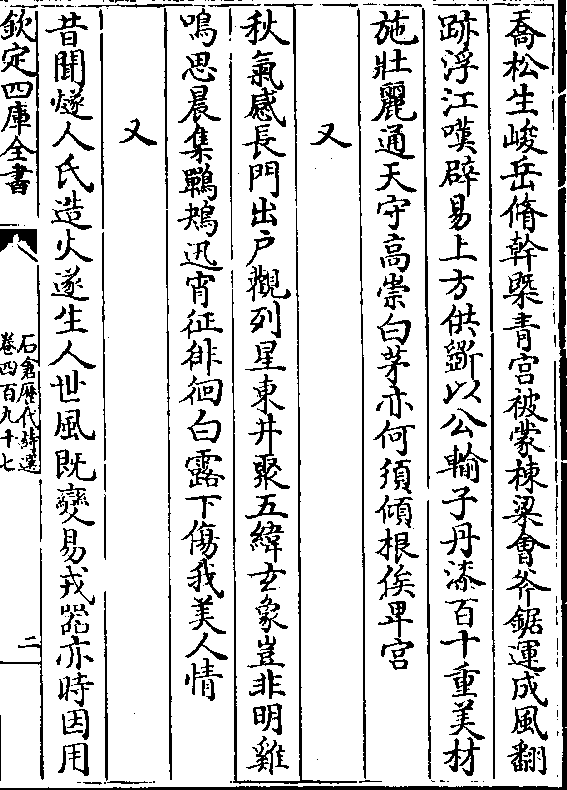 喬松生峻岳脩幹槩青宫被蒙棟梁會斧鋸運成風翻
跡浮江嘆辟易上方供斵以公輸子丹漆百十重美材
施壯麗通天守高崇白茅亦何須傾根俟卑宫
又
秋氣感長門出户觀列星東井聚五緯玄象豈非明雞
鳴思晨集鷤鴂迅宵征徘徊白露下傷我美人情
又
昔聞燧人氏造火遂生人世風既變易戎器亦時因用
欽定四庫全書
石倉歷代詩選
卷四百九十七
二